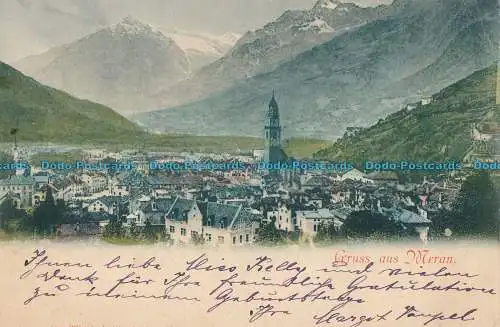 Dodo-Postcards Dodo-Postcards Dodo-Postcards Dodo-Postcards Dodo-Postcards
Gruss aus Meran.
Ihnen liebe Miss Kelly und vielen
Dank für Ihre freundliche Gratulation
zu meinem Geburtstage
Ihre Margot